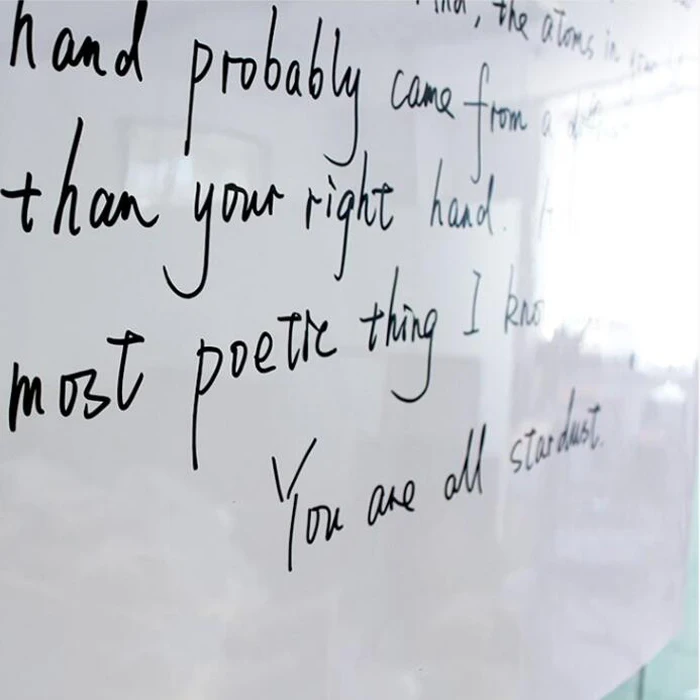 the atoms in
hand probably came from a
than your right hand.
most poetic thing I
You are all stardust.